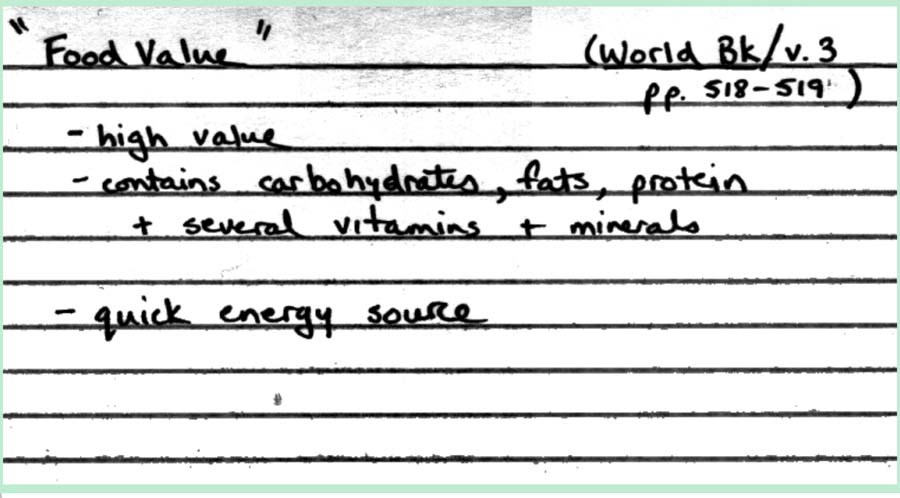 "Food Value" (World Bk/v. 3
pp. 518-519)
- high value
- contains carbohydrates, fats, protein
+ several vitamins + minerals
- quick energy source